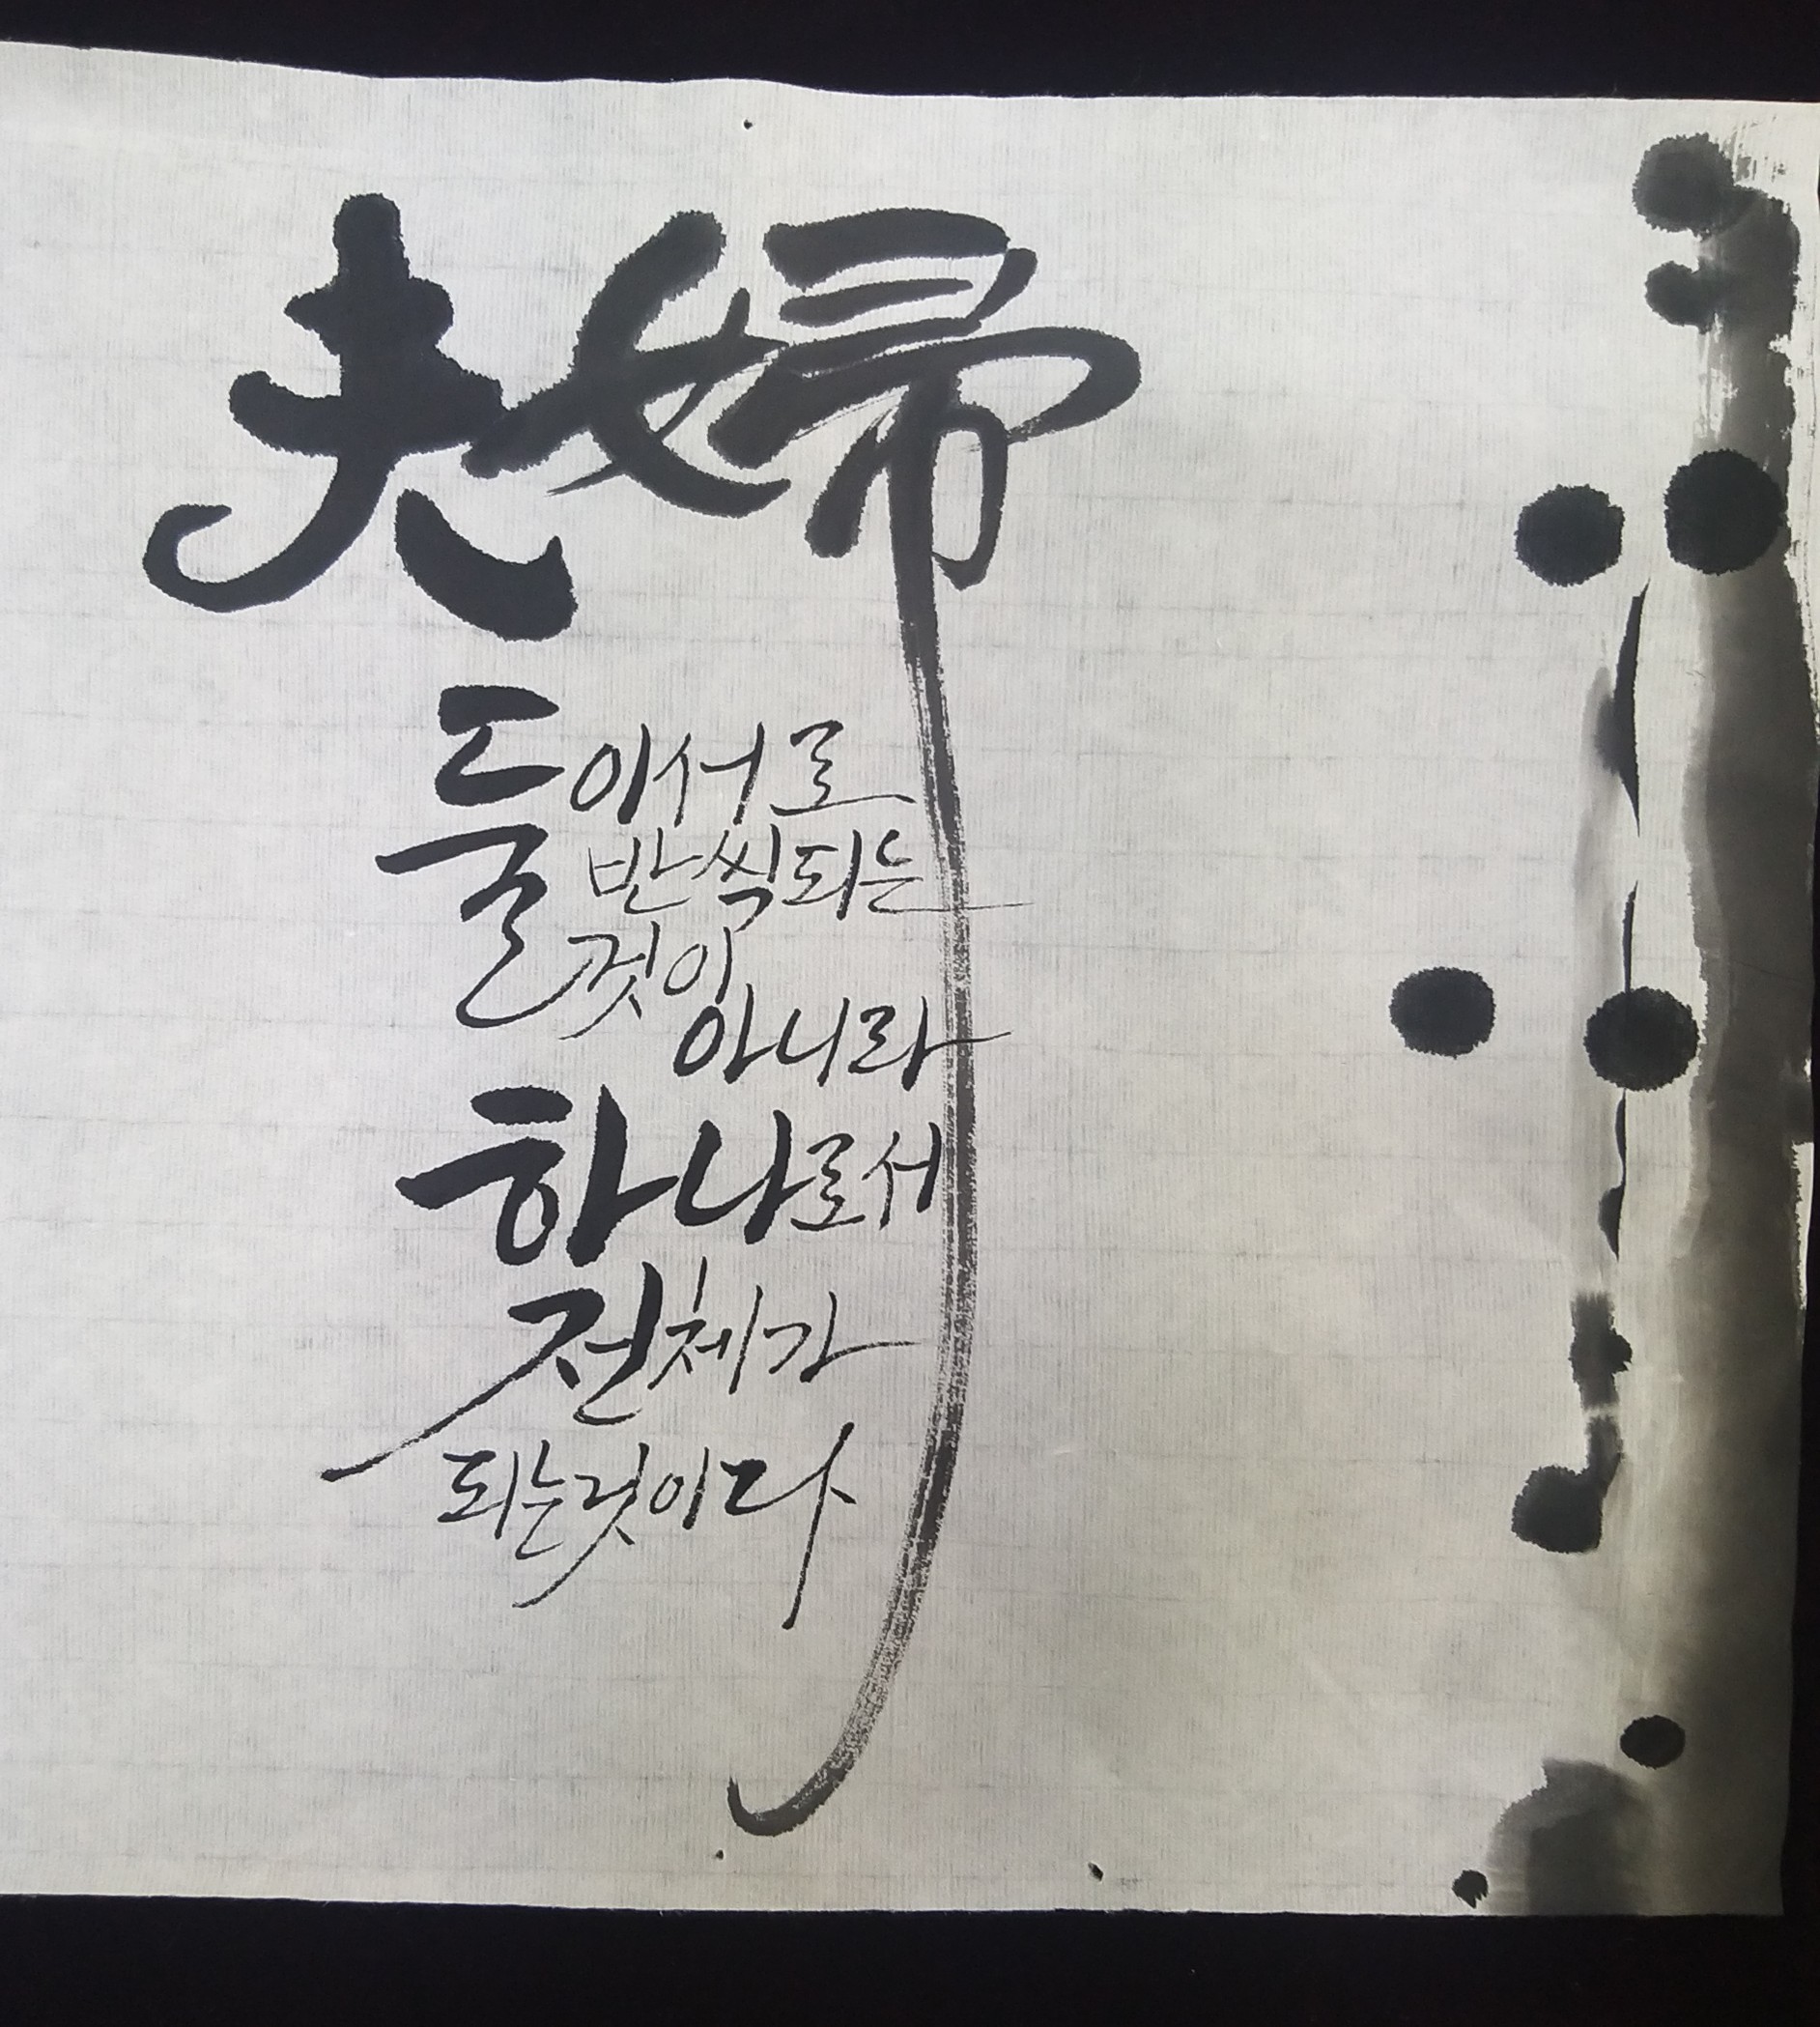 夫婦
둘이서로
반씩되는
것이
아니라
하나로서
전체가
되는것이다